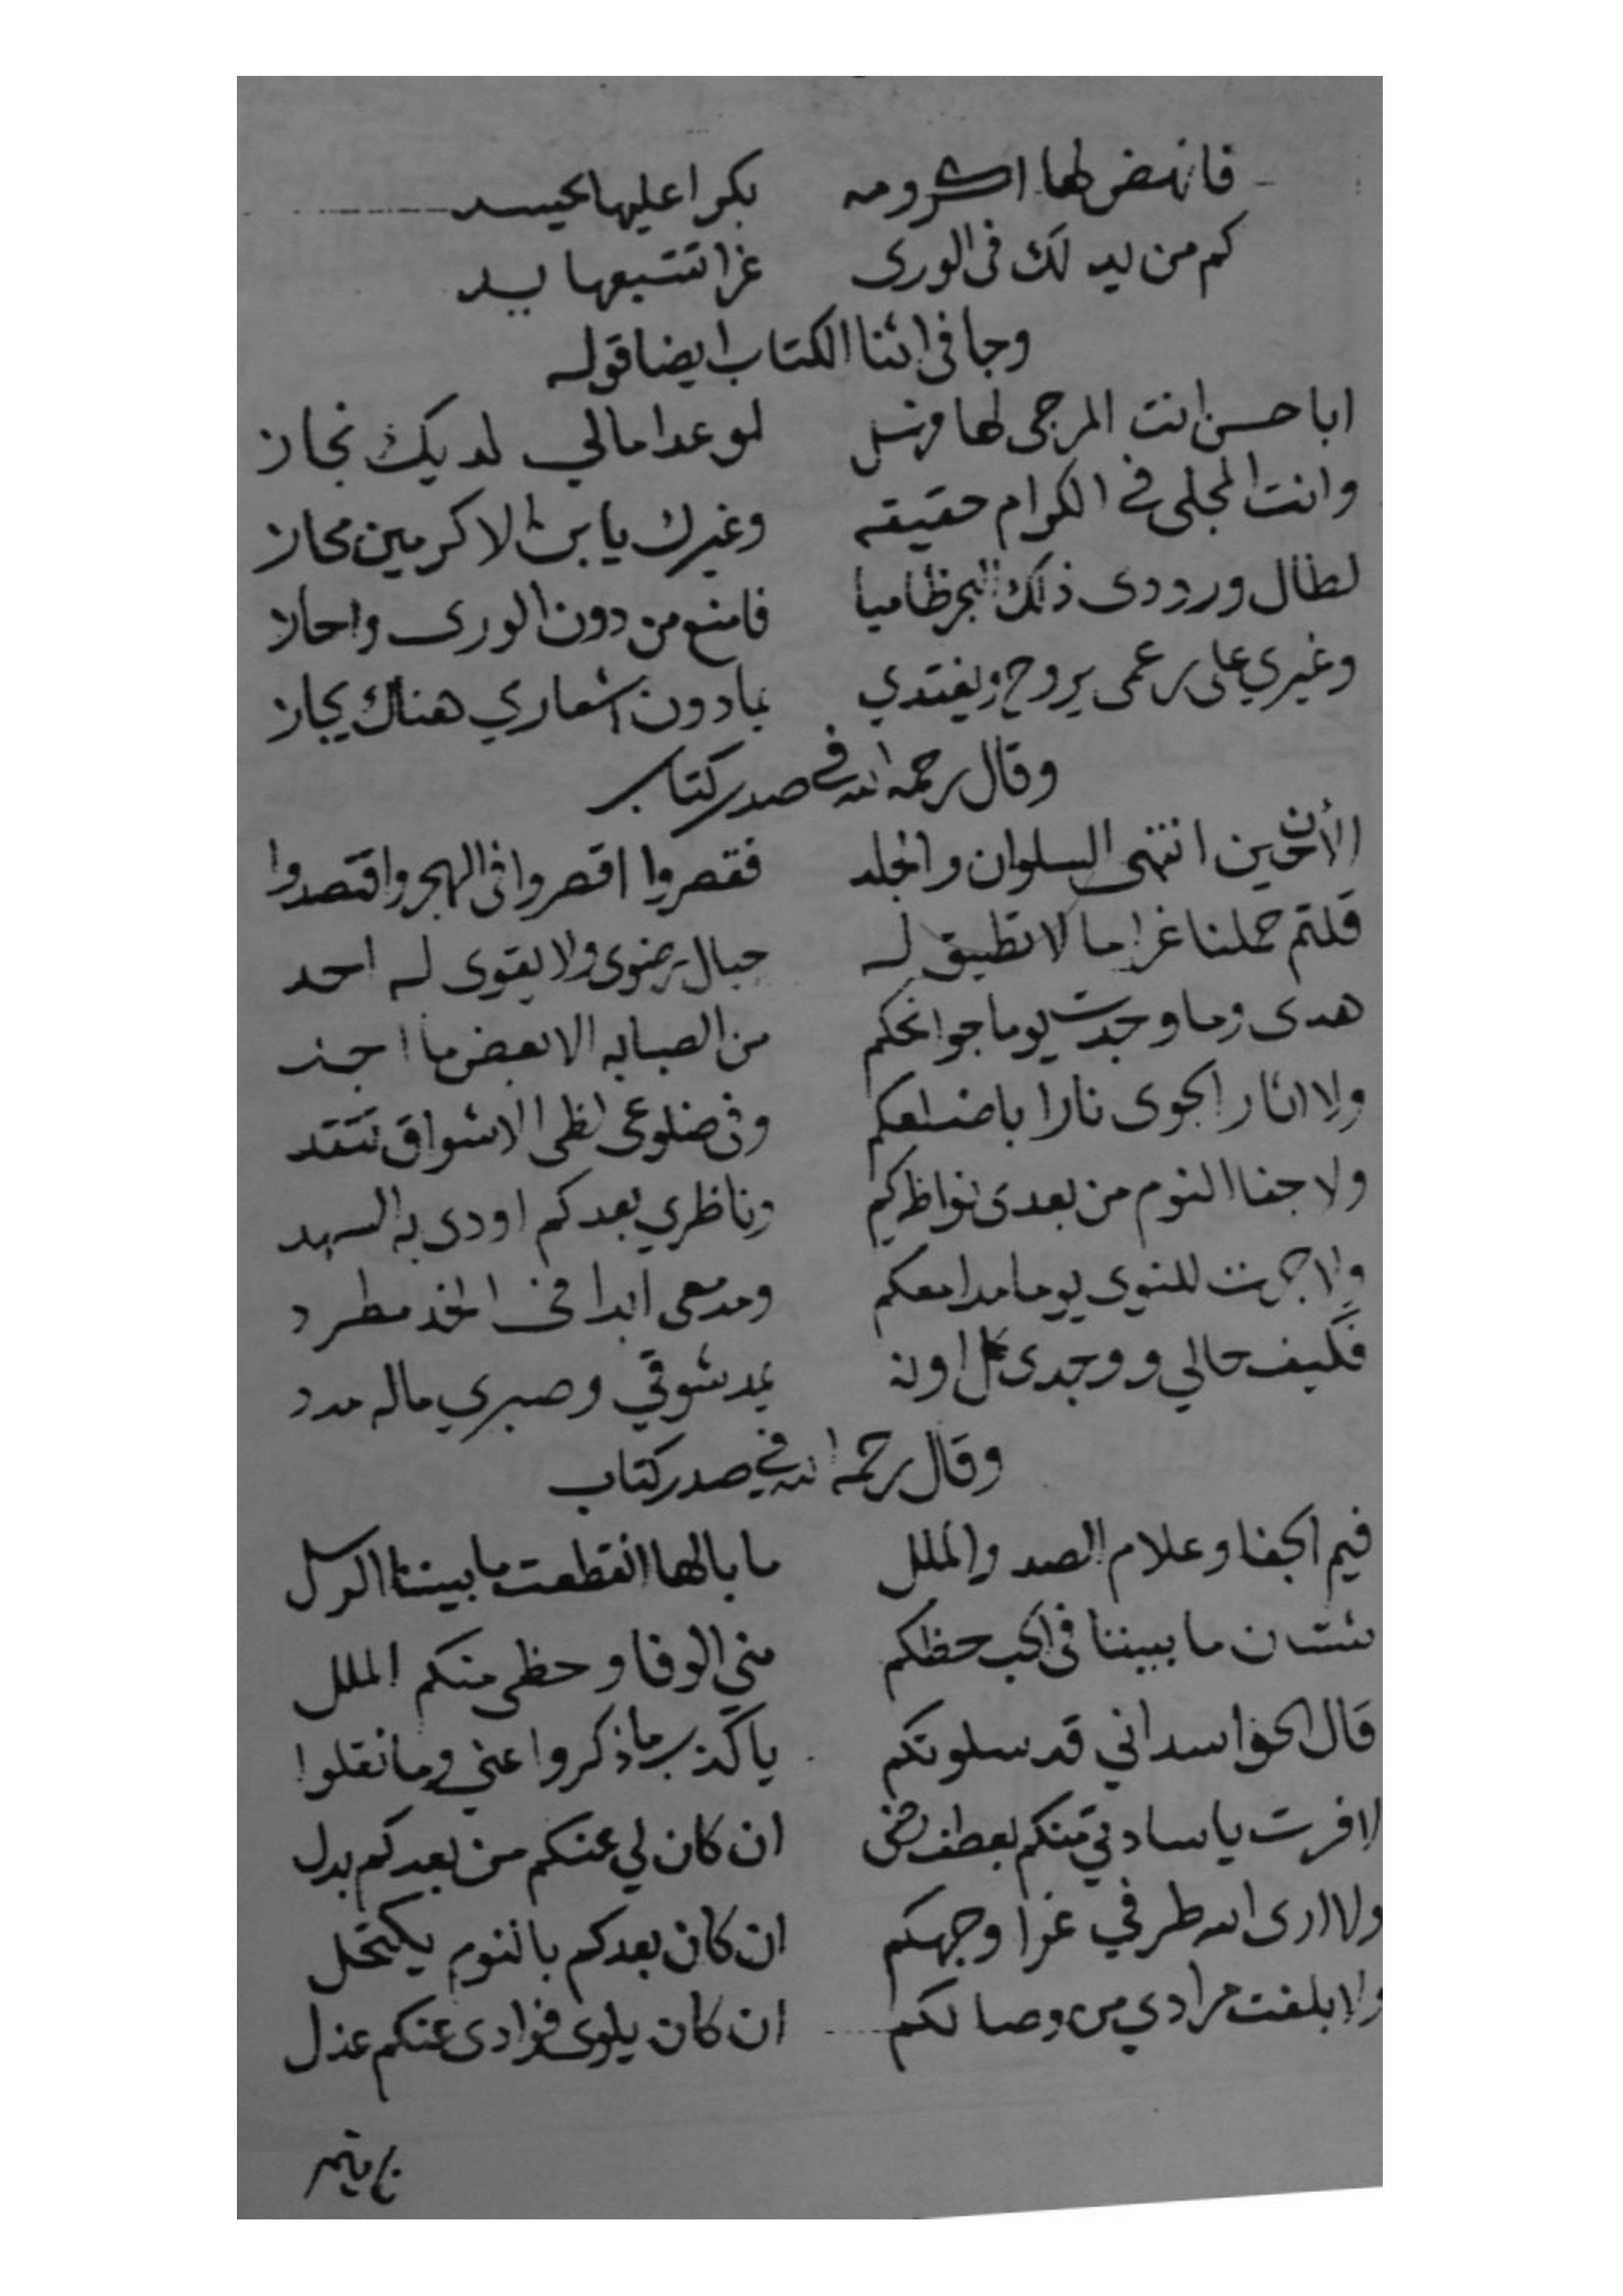 فانهض لها اكرومه بكرا عليها يحسد
كم من يد لك في الورى غرا تتبعها يد
وجا في اثنا الكتاب ايضا قوله
ابا حسن انت المرجى لها وهل لوعد امالي لديك نجاز
وانت المجلى في الكرام حقيقه وغيرك يا بن الاكرمين مجاز
لطال ورودى ذلك البحر ظاميا فامنع من دون الورى واحلا
وغيري على رغمى يروح ويغتدي بما دون اشعاري هناك يجاز
وقال رحمه الله في صدر كتاب
الأن حين انتهى السلوان والجلد فقصروا اقصروا في الهجر واقتصدوا
قلتم حملنا غراما لا تطيق له جبال رضوى ولا يقوى له احد
هدى وما وجدت يوما جوانحكم من الصبابه الا بعض ما اجد
ولا اثار الجوى نارا باضلعكم وفي ضلوعى لظى الاشواق تتقد
ولا جفا النوم من بعدى نواظركم وناظري بعدكم اودى به السهد
ولا جرت للنوى يوما مدامعكم ومدمعى ابدا في الخد مطرد
فكيف حالي ووجدى كل اونة يمد شوقي وصبري ماله مدد
وقال رحمه الله في صدر كتاب
فيم الجفا وعلام الصد والملل ما بالها انقطعت ما بيننا الرسل
شتان ما بيننا في الحب حظكم مني الوفا وحظى منكم الملل
قال الحواسد اني قد سلوتكم يا كذب ما ذكروا عني وما نقلوا
لا فزت يا سادتي منكم بعطف رضى ان كان لي عنكم من بعدكم بدل
ولا ارى الله طرفي غرا وجهكم ان كان بعدكم بالنوم يكتحل
ولا بلغت مرادي من وصالكم ان كان يلوى فوادى عنكم عذل